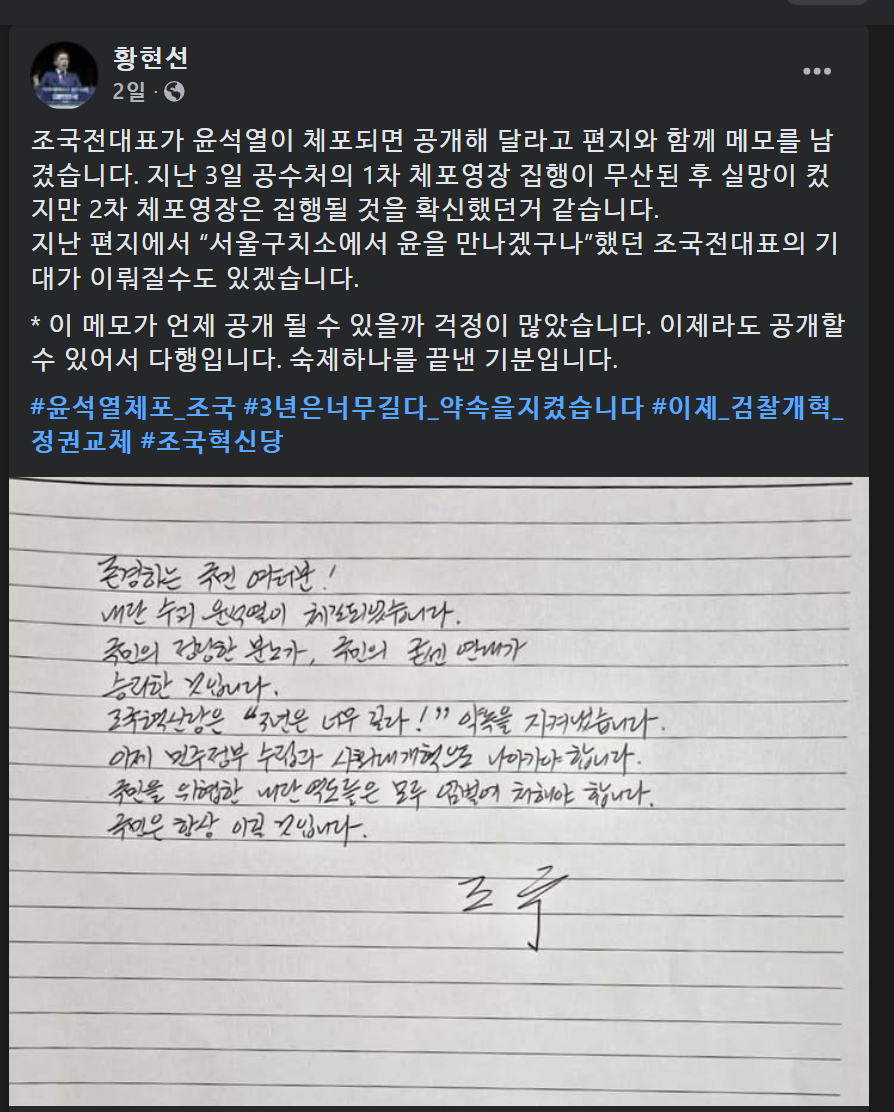 황현선
2일 ·
조국전대표가 윤석열이 체포되면 공개해 달라고 편지와 함께 메모를 남
겼습니다. 지난 3일 공수처의 1차 체포영장 집행이 무산된 후 실망이 컸
지만 2차 체포영장은 집행될 것을 확신했던거 같습니다.
지난 편지에서 “서울구치소에서 윤을 만나겠구나”했던 조국전대표의 기
대가 이뤄질수도 있겠습니다.
* 이 메모가 언제 공개 될 수 있을까 걱정이 많았습니다. 이제라도 공개할
수 있어서 다행입니다. 숙제하나를 끝낸 기분입니다.
#윤석열체포_조국 #3년은너무길다_약속을지켰습니다 #이제_검찰개혁_
정권교체 #조국혁신당
존경하는 국민 여러분!
내란 수괴 윤석열이 체포되었습니다.
국민의 정당한 분노가, 국민의 굳센 연대가
승리한 것입니다.
조국혁신당은 “3년은 너무 길다!” 약속을 지켜냈습니다.
이제 민주정부 수립과 사회대개혁으로 나아가야 합니다.
국민을 위협한 내란 역도들은 모두 엄벌에 처해야 합니다.
국민은 항상 이길 것입니다.
조국